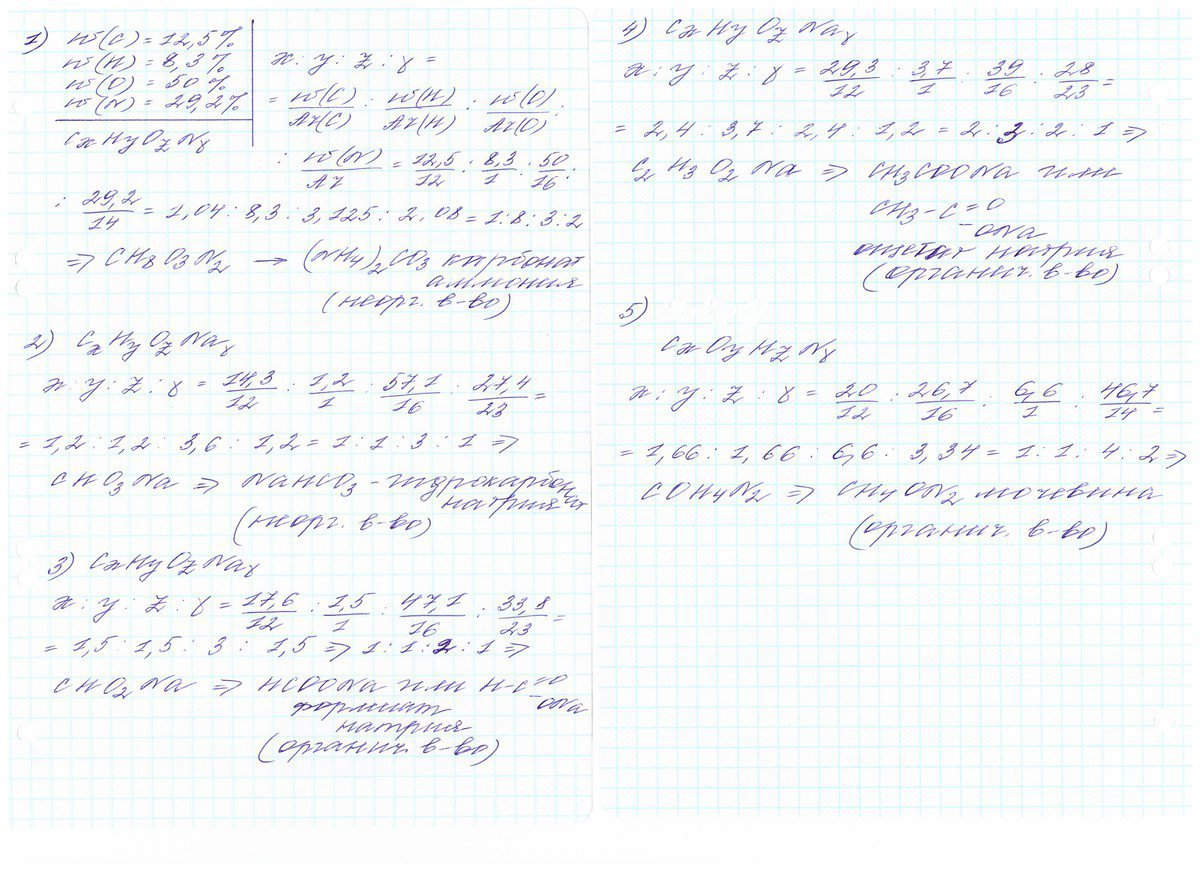 1) w(C) = 12,5%
w(H) = 8,3%
w(O) = 50%
w(N) = 29,2%
CxHyOzNγ
x : y : z : γ =
= w(C)/Ar(C) : w(H)/Ar(H) : w(O)/Ar(O) :
: w(N)/Ar = 12,5/12 : 8,3/1 : 50/16 :
: 29,2/14 = 1,04 : 8,3 : 3,125 : 2,08 = 1:8:3:2
⇒ CH8O3N2 → (NH4)2CO3 карбонат
аммония
(неорг. в-во)
2) CxHyOzNaγ
x : y : z : γ = 14,3/12 : 1,2/1 : 57,1/16 : 27,4/23 =
= 1,2 : 1,2 : 3,6 : 1,2 = 1 : 1 : 3 : 1 ⇒
CHO3Na ⇒ NaHCO3 - гидрокарбонат
натрия
(неорг. в-во)
3) CxHyOzNaγ
x : y : z : γ = 17,6/12 : 1,5/1 : 47,1/16 : 33,8/23 =
= 1,5 : 1,5 : 3 : 1,5 ⇒ 1 : 1 : 2 : 1 ⇒
CHO2Na ⇒ HCOONa или H-C=O
-ONa
формиат
натрия
(органич. в-во)
4) CxHyOzNaγ
x : y : z : γ = 29,3/12 : 3,7/1 : 39/16 : 28/23 =
= 2,4 : 3,7 : 2,4 : 1,2 = 2 : 3 : 2 : 1 ⇒
C2H3O2Na ⇒ CH3COONa или
CH3-C=O
-ONa
ацетат натрия
(органич. в-во)
5)
CxOyHzNγ
x : y : z : γ = 20/12 : 26,7/16 : 6,6/1 : 46,7/14 =
= 1,66 : 1,66 : 6,6 : 3,34 = 1 : 1 : 4 : 2 ⇒
COH4N2 ⇒ CH4ON2 мочевина
(органич. в-во)